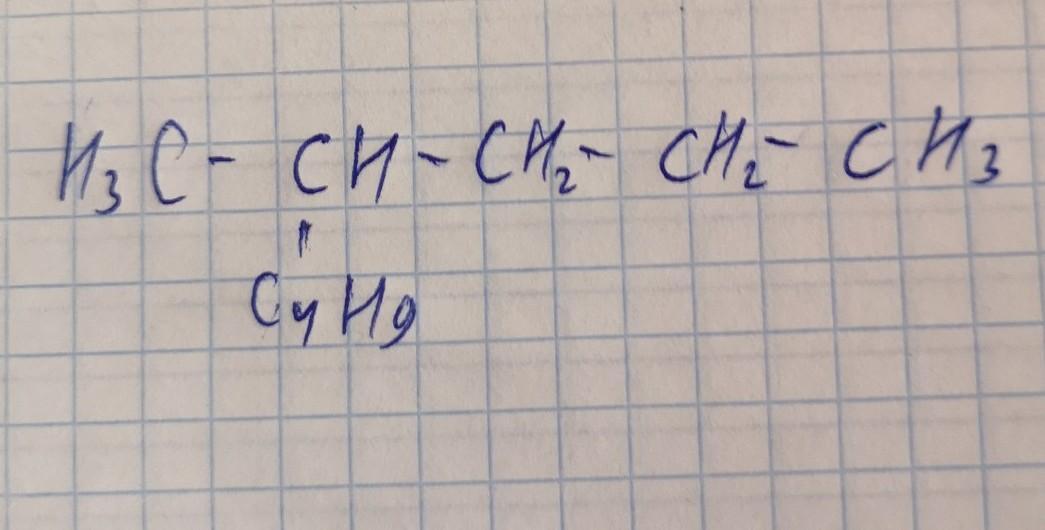 H₃C - CH - CH₂ - CH₂ - CH₃
C₄H₉